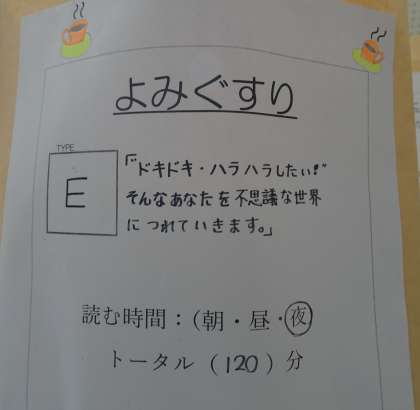 よみぐすり
TYPE
E
「"ドキドキ・ハラハラしたい!"
そんなあなたを不思議な世界
につれていきます。」
読む時間：(朝・昼・夜
トータル（120）分